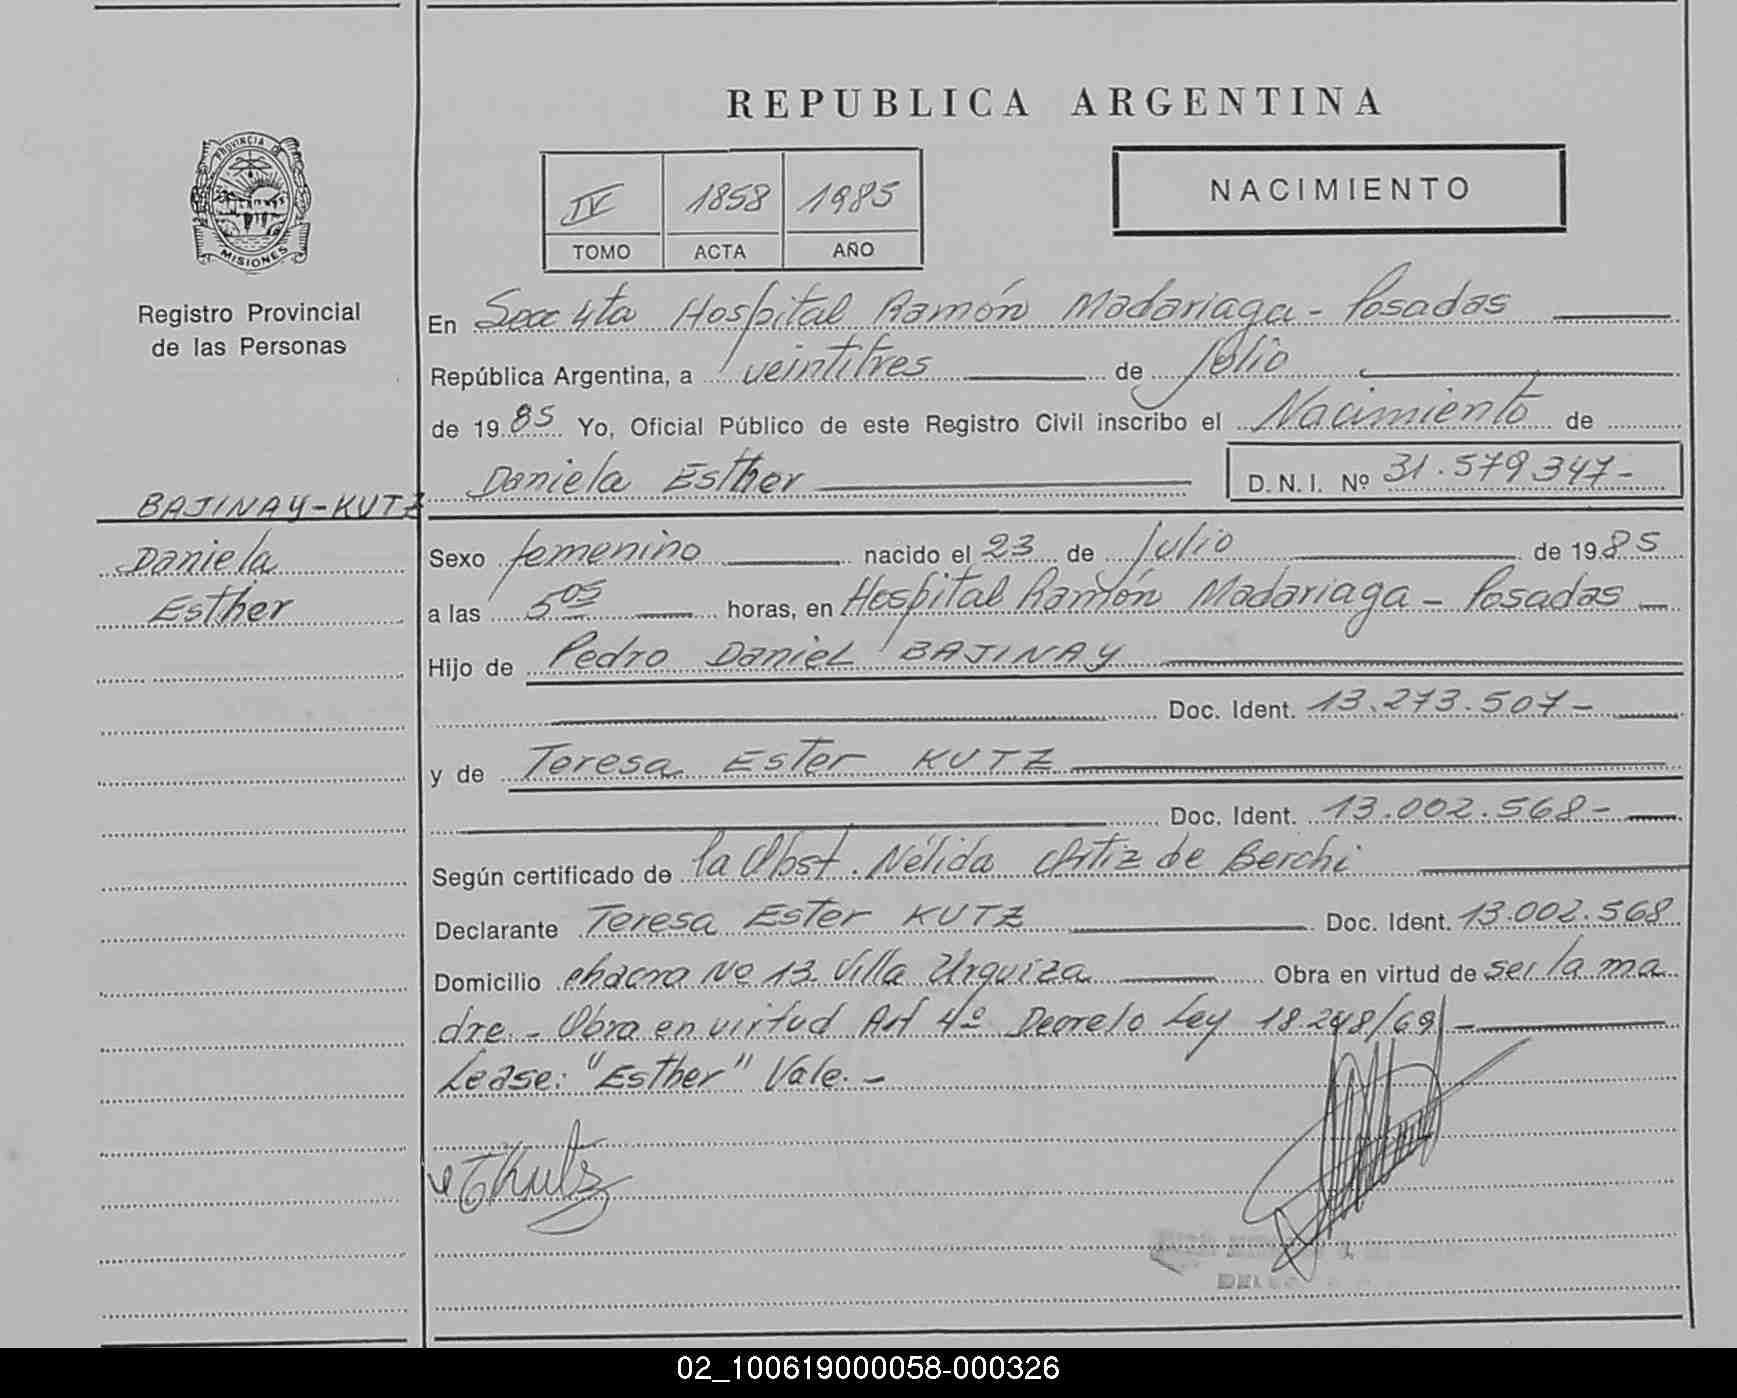 REPUBLICA ARGENTINA
PROVINCIA DE
MISIONES
IV 1858 1985
TOMO ACTA AÑO
NACIMIENTO
Registro Provincial
de las Personas
En Secc 4ta Hospital Ramón Madariaga - Posadas
República Argentina, a veintitres de Julio
de 1985 Yo, Oficial Público de este Registro Civil inscribo el Nacimiento de
Daniela Esther D.N.I. Nº 31.579347-
BAJINAY-KUTZ
Daniela
Esther
Sexo femenino nacido el 23 de Julio de 1985
a las 5 05 horas, en Hospital Ramón Madariaga - Posadas
Hijo de Pedro Daniel BAJINAY
Doc. Ident. 13.273.507-
y de Teresa Ester KUTZ
Doc. Ident. 13.002.568-
Según certificado de la Obst. Nélida Ortiz de Berchi
Declarante Teresa Ester KUTZ Doc. Ident. 13.002.568
Domicilio chacra Nº 13 Villa Urquiza Obra en virtud de ser la ma
dre.- Obra en virtud Art 4º Decreto Ley 18.248/69 -
Lease: "Esther" Vale.-
TKutz
02_100619000058-000326